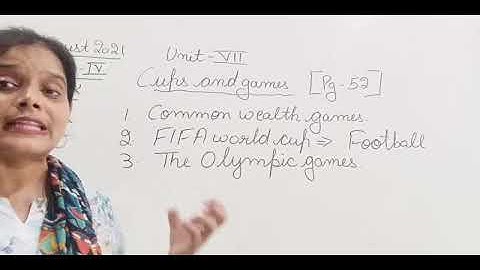 ust 2021
Unit-VII
-IV
Cups and games [Pg-52]
1 Common wealth games.
2 FIFA world cup ⇒ Football
3. The Olympic games.